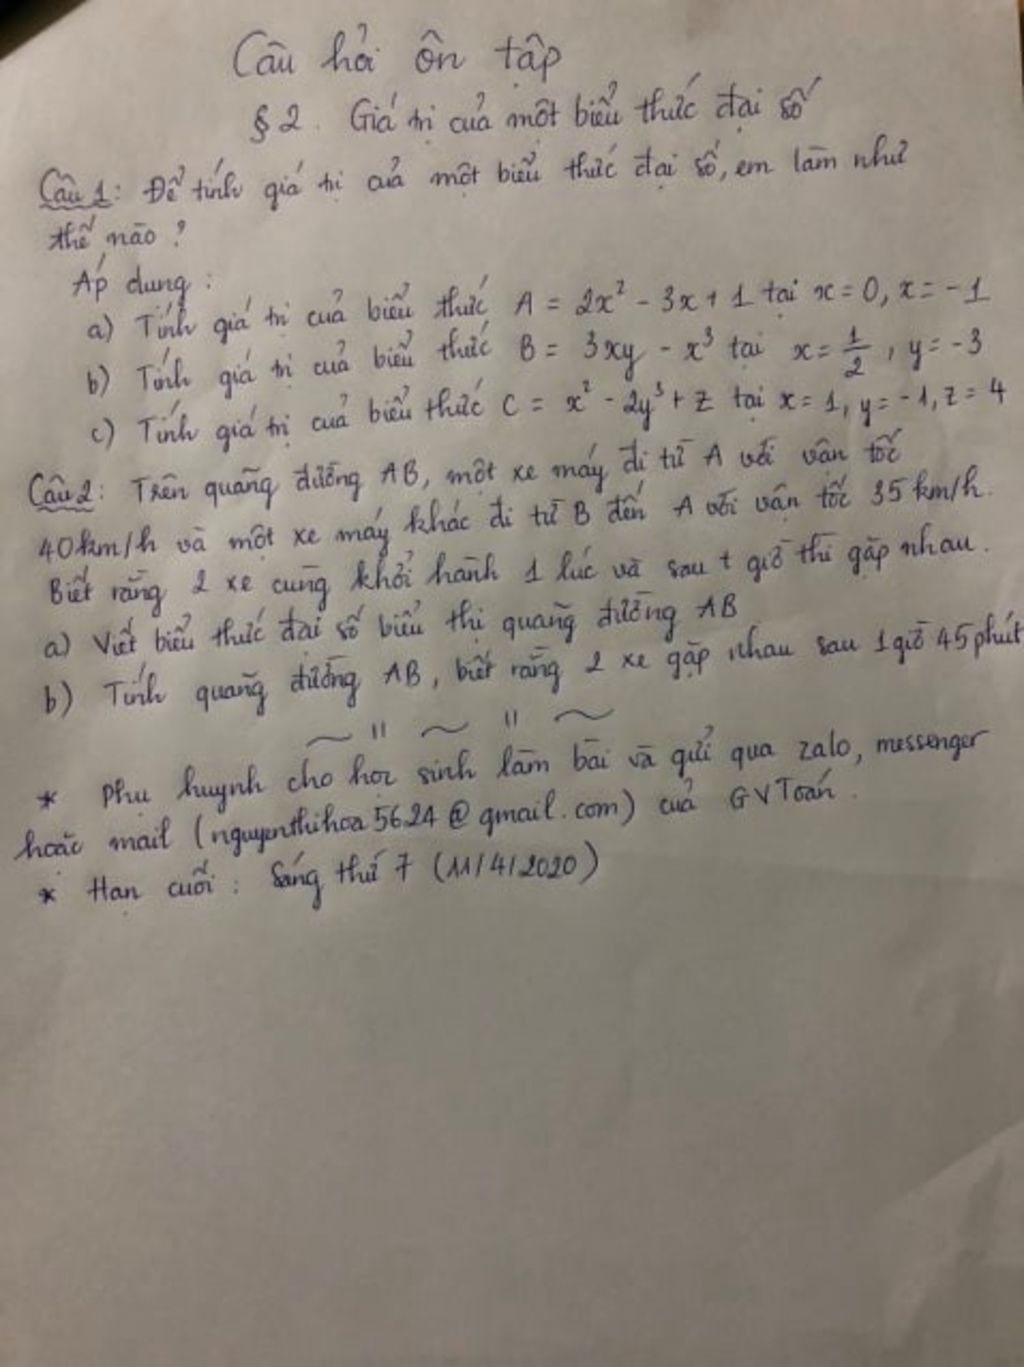 Câu hỏi ôn tập
§2. Giá trị của một biểu thức đại số
Câu 1: Để tính giá trị của một biểu thức đại số, em làm như
thế nào?
Áp dụng:
a) Tính giá trị của biểu thức A = 2x² - 3x + 1 tại x = 0, x = -1
b) Tính giá trị của biểu thức B = 3xy - x³ tại x = 1/2, y = -3
c) Tính giá trị của biểu thức C = x² - 2y³ + z tại x = 1, y = -1, z = 4
Câu 2: Trên quãng đường AB, một xe máy đi từ A với vận tốc
40km/h và một xe máy khác đi từ B đến A với vận tốc 35 km/h.
Biết rằng 2 xe cùng khởi hành 1 lúc và sau t giờ thì gặp nhau.
a) Viết biểu thức đại số biểu thị quãng đường AB
b) Tính quãng đường AB, biết rằng 2 xe gặp nhau sau 1 giờ 45 phút
~ " ~ " ~
* Phụ huynh cho học sinh làm bài và gửi qua zalo, messenger
hoặc mail (nguyenthihoa5624@gmail.com) của GV Toán.
* Hạn cuối: Sáng thứ 7 (11/4/2020)